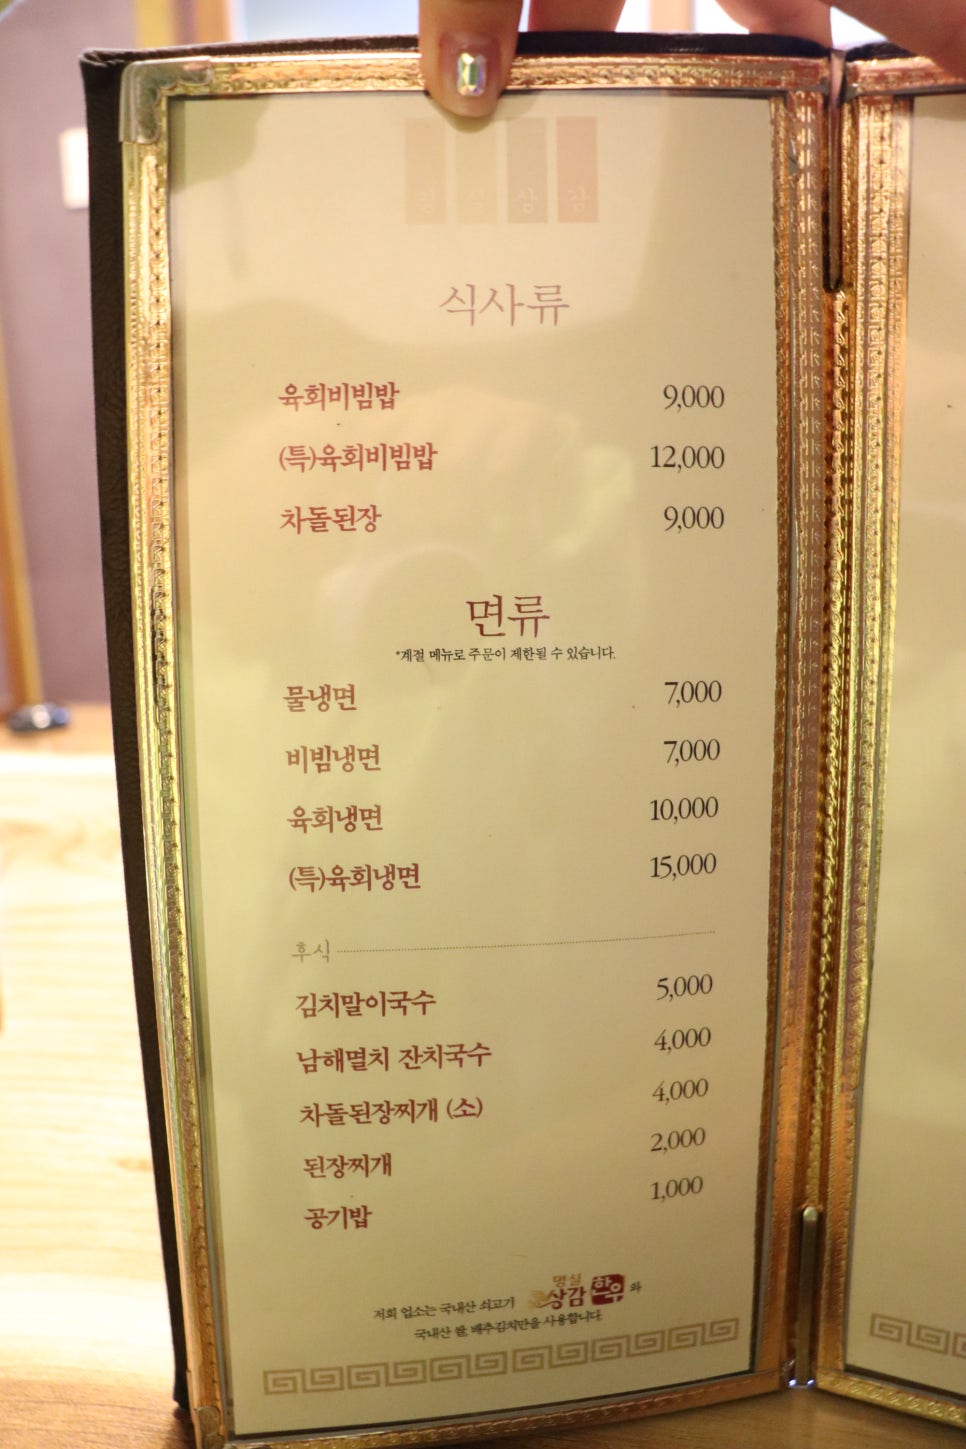 상 감
식사류
육회비빔밥 9,000
(특)육회비빔밥 12,000
차돌된장 9,000
면류
*계절 메뉴로 주문이 제한될 수 있습니다.
물냉면 7,000
비빔냉면 7,000
육회냉면 10,000
(특)육회냉면 15,000
후식
김치말이국수 5,000
남해멸치 잔치국수 4,000
차돌된장찌개 (소) 4,000
된장찌개 2,000
공기밥 1,000
저희 업소는 국내산 쇠고기 명실상감 한우 와
국내산 쌀, 배추김치만을 사용합니다.